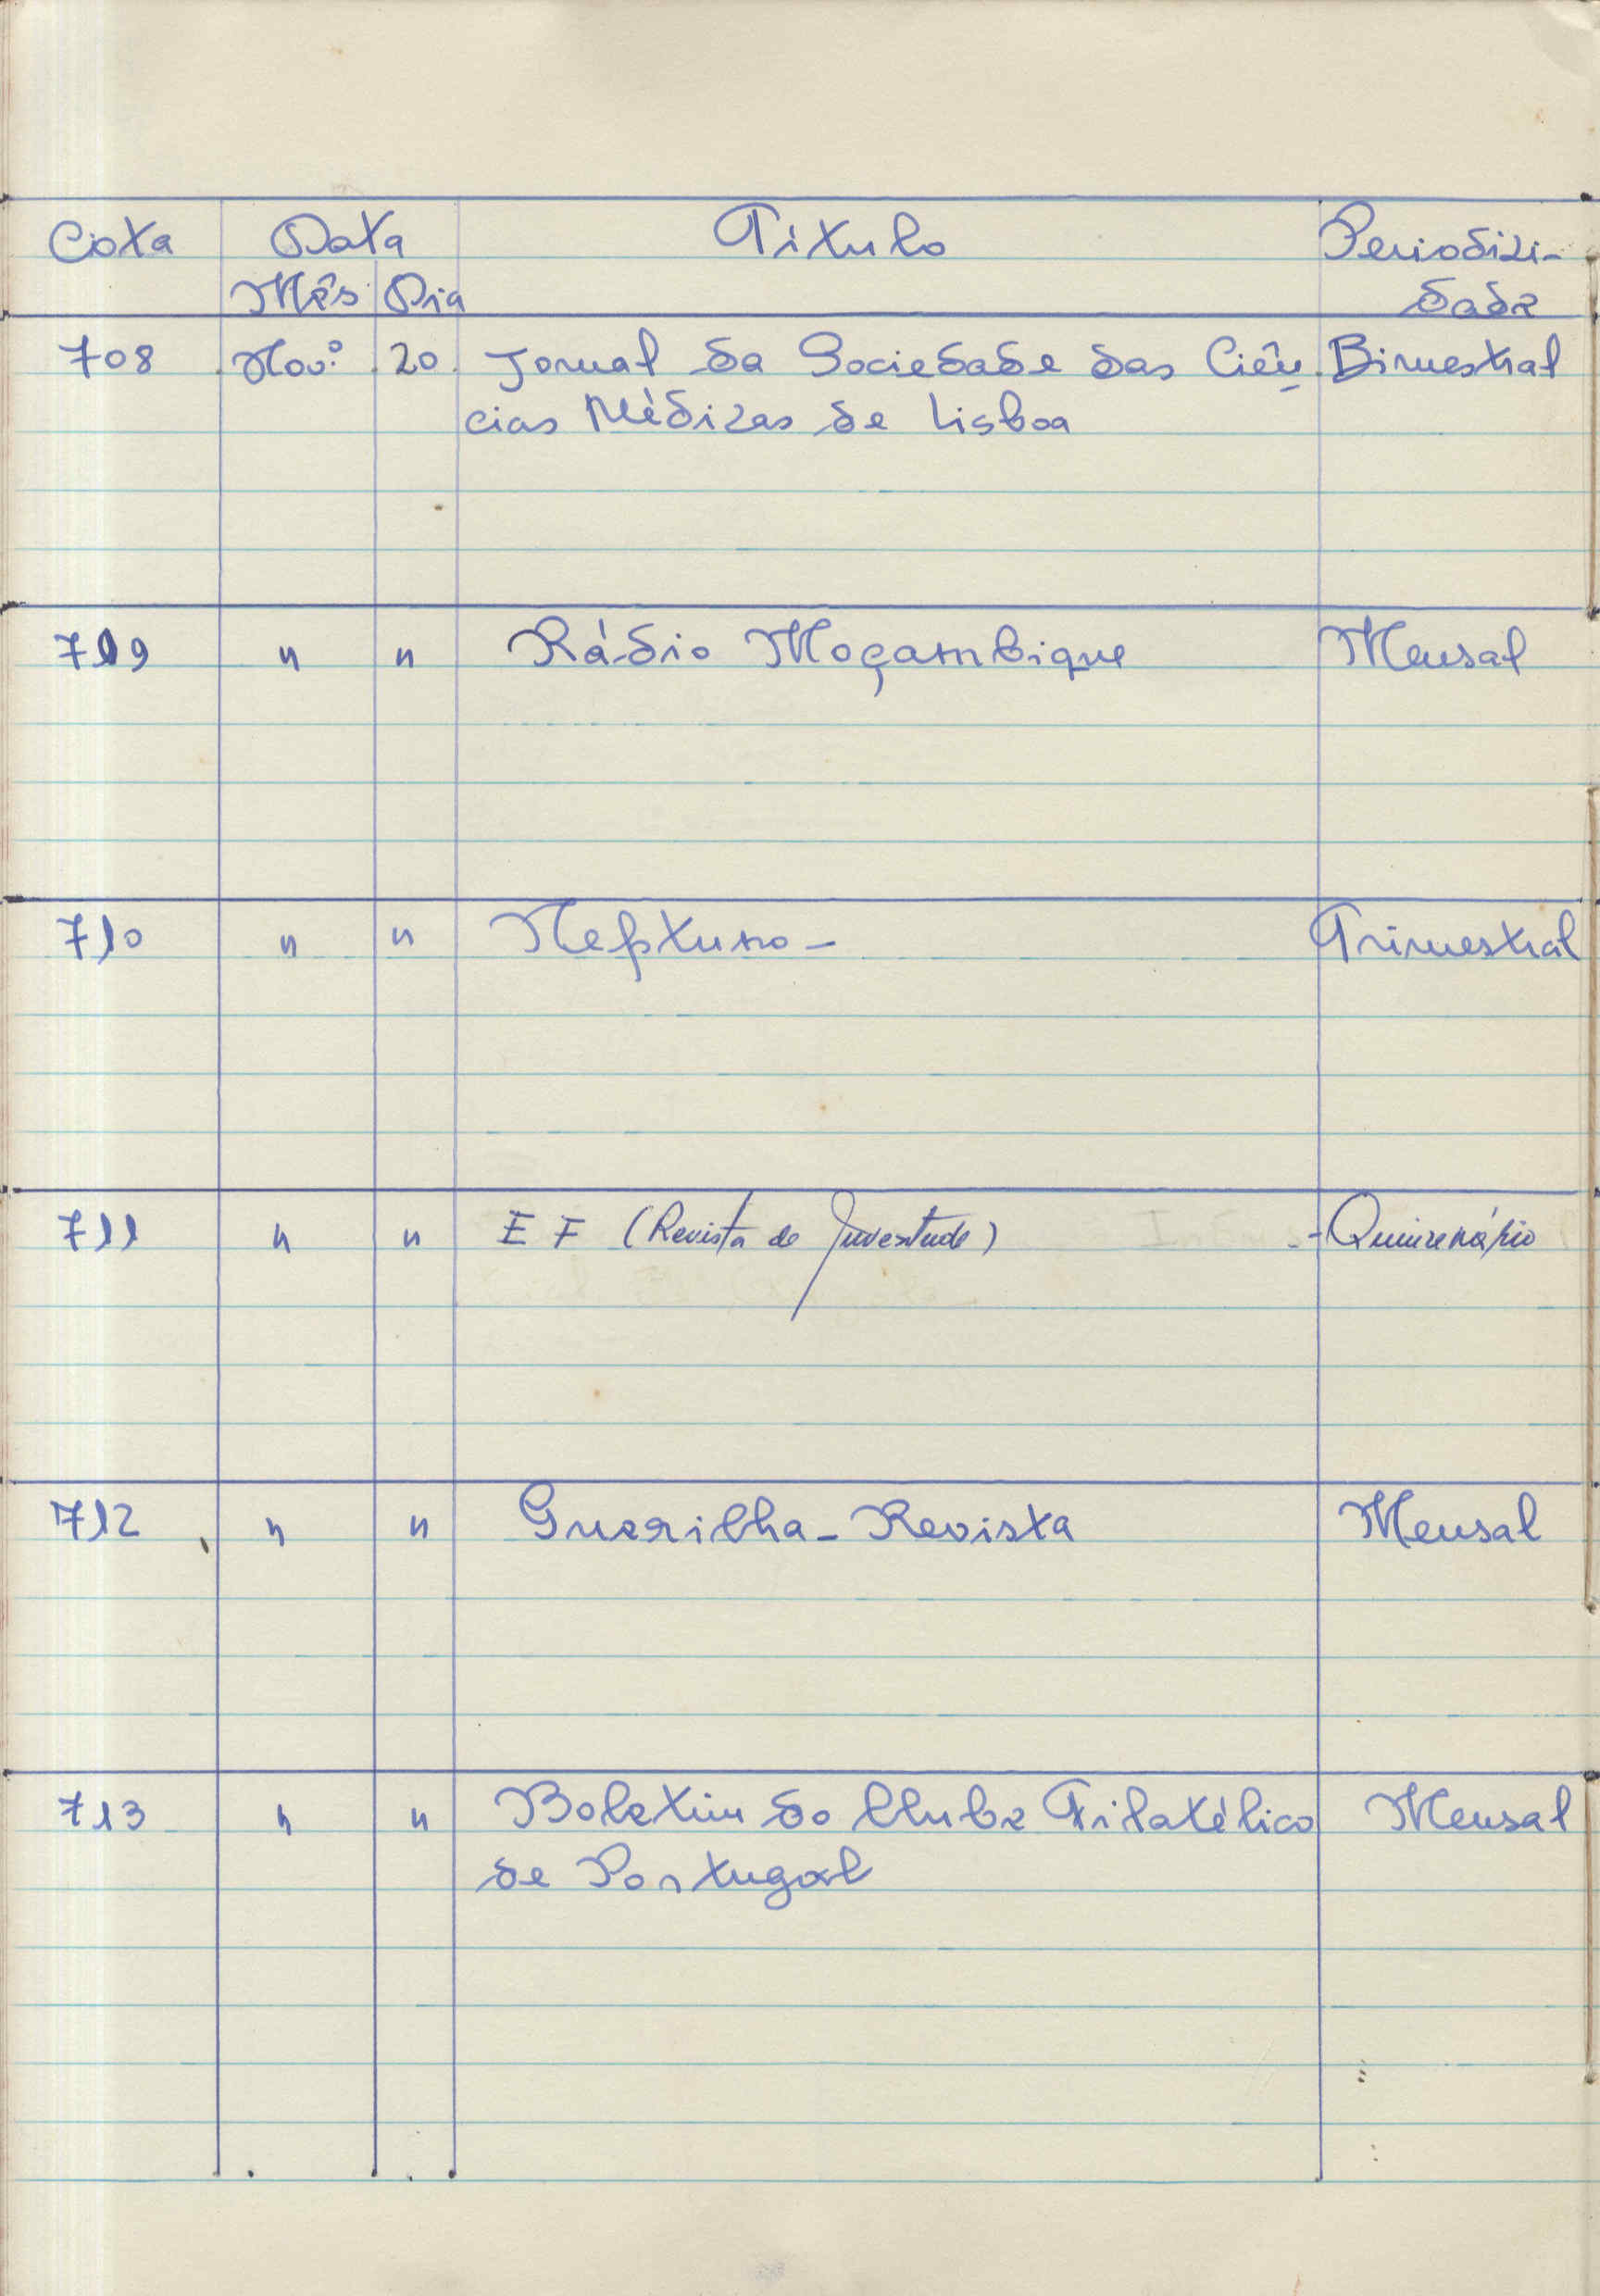 Cota Data Título Periodici-
Mês Dia dade
708 Nov.º 20 Jornal da Sociedade das Ciên Bimestral
cias Médicas de Lisboa
709 " " Rádio Moçambique Mensal
710 " " Neptuno - Trimestral
711 " " E F (Revista de Juventude) - Quinzenário
712 " " Guerrilha - Revista Mensal
713 " " Boletim do Clube Filatélico Mensal
de Portugal